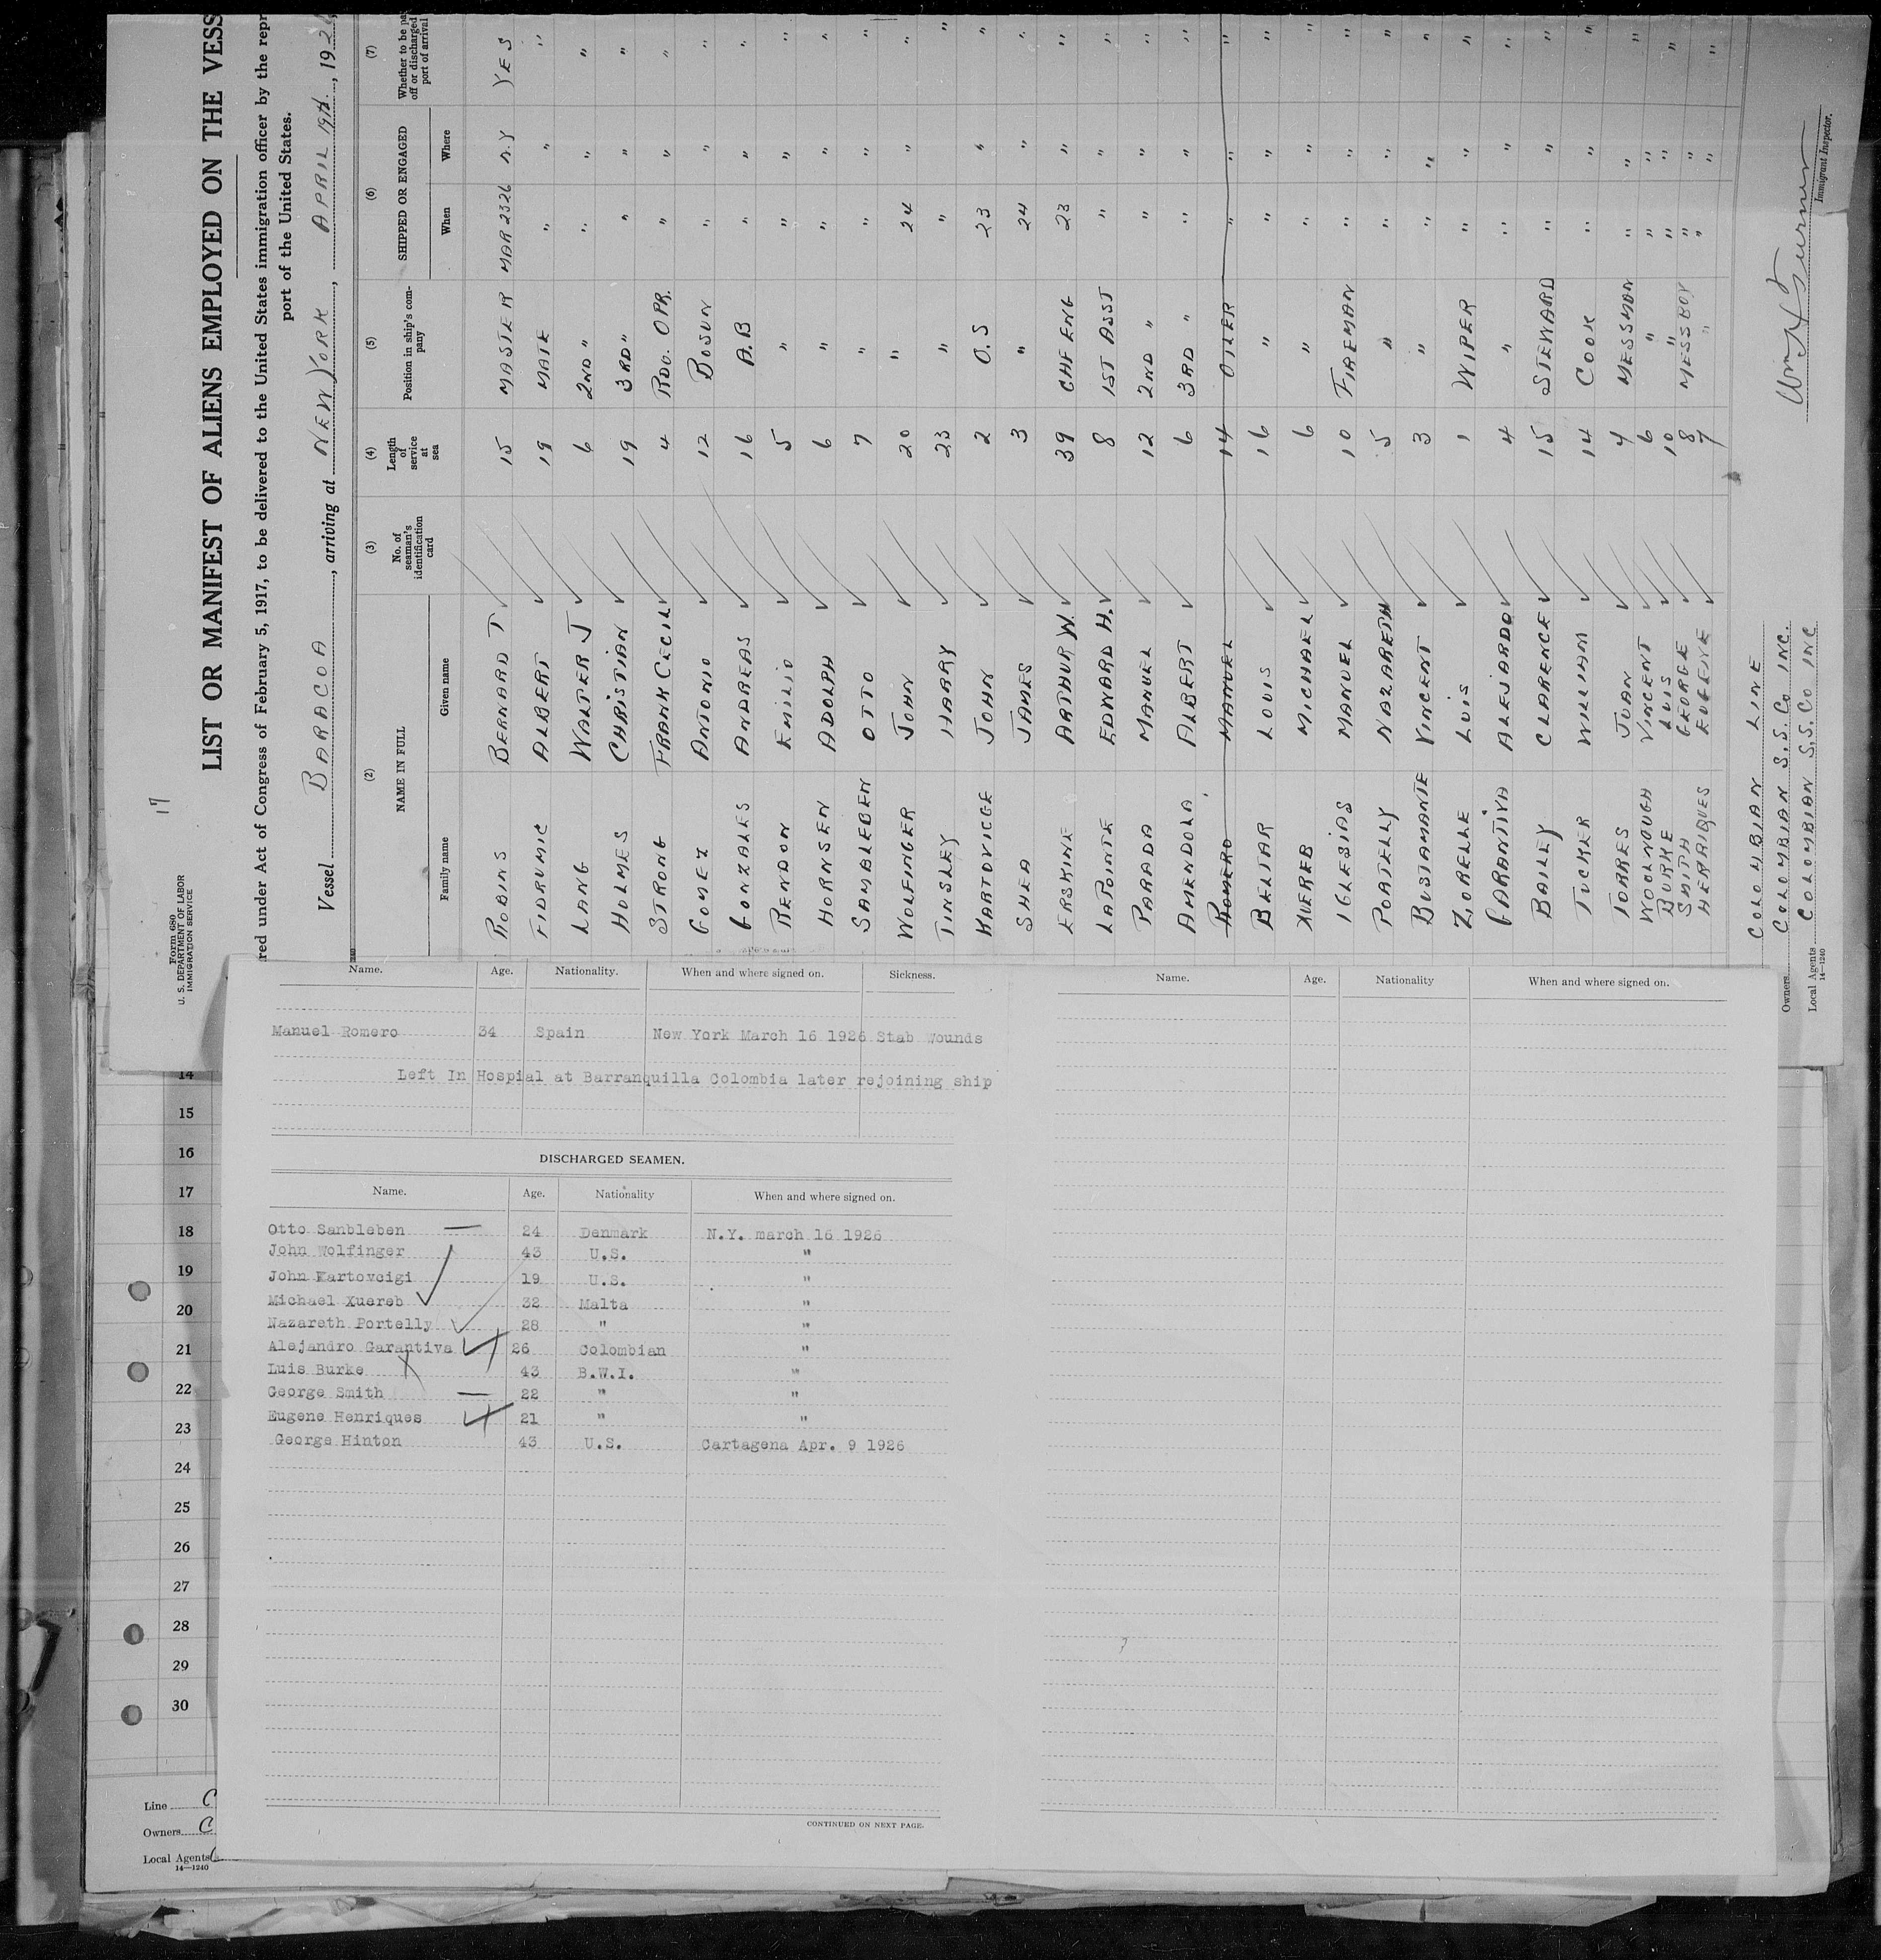 17
Form 680
U. S. DEPARTMENT OF LABOR
IMMIGRATION SERVICE
LIST OR MANIFEST OF ALIENS EMPLOYED ON THE VESS
red under Act of Congress of February 5, 1917, to be delivered to the United States immigration officer by the repr
port of the United States.
Vessel BARACOA, arriving at NEW YORK, APRIL 19th, 192
(2) (3) (4) (5) (6) (7)
NAME IN FULL No. of seaman's identification card Length of service at sea Position in ship's com-pany SHIPPED OR ENGAGED Whether to be pa off or discharged port of arrival
Family name Given name When Where
ROBINS BERNARD T 15 MASTER MAR 23 26 N.Y YES
FIDRUMIC ALBERT 19 MATE " " "
LANG WALTER J 6 2ND " " " "
HOLMES CHRISTIAN 19 3RD " " " "
STRONG FRANK CECIL 4 RDO. OPR. " " "
GOMEZ ANTONIO 12 BOSUN " " "
GONZALES ANDREAS 16 A.B " " "
RENDON EMILIO 5 " " " "
HORNSEN ADOLPH 6 " " " "
SAMBLEBEN OTTO 7 " " " "
WOLFINGER JOHN 20 " 24 " "
TINSLEY HARRY 23 " " " "
KARTOVICGE JOHN 2 O.S 23 " "
SHEA JAMES 3 " 24 " "
ERSKINE ARTHUR W. 39 CHF ENG 23 " "
LAPOINTE EDWARD H. 8 1ST ASST " " "
PARADA MANUEL 12 2ND " " " "
AMENDOLA ALBERT 6 3RD " " " "
ROMERO MANUEL 14 OILER " " "
BELTAR LOUIS 16 " " " "
XUEREB MICHAEL 6 " " " "
IGLESIAS MANUEL 10 FIREMAN " " "
PORTELLY NAZARETH 5 " " " "
BUSTAMANTE VINCENT 3 " " " "
ZORELLE LUIS 1 WIPER " " "
GARANTIVA ALEJARDO 4 " " " "
BAILEY CLARENCE 15 STEWARD " " "
TUCKER WILLIAM 14 COOK " " "
TORRES JUAN 4 MESSMAN " " "
WOOLNOUGH VINCENT 6 " " " "
BURKE LUIS 10 " " " "
SMITH GEORGE 8 MESSBOY " " "
HERRIQUES EUGEINE 7 " " " "
COLOMBIAN LINE
Owners COLOMBIAN S.S. Co INC.
Local Agents COLOMBIAN S.S. Co INC
14—1240
Immigrant Inspector.
Name. Age. Nationality. When and where signed on. Sickness.
Manuel Romero 34 Spain New York March 16 1926 Stab Wounds
Left In Hospial at Barranquilla Colombia later rejoining ship
DISCHARGED SEAMEN.
Name. Age. Nationality When and where signed on.
Otto Sanbleben 24 Denmark N.Y. march 16 1926
John Wolfinger 43 U.S. "
John Kartovcigi 19 U.S. "
Michael Xuereb 32 Malta "
Nazareth Portelly 28 " "
Alejandro Garantiva 26 Colombian "
Luis Burke 43 B.W.I. "
George Smith 22 " "
Eugene Henriques 21 " "
George Hinton 43 U.S. Cartagena Apr. 9 1926
CONTINUED ON NEXT PAGE.
Name. Age. Nationality When and where signed on.
14
15
16
17
18
19
20
21
22
23
24
25
26
27
28
29
30
Line C
Owners C
Local Agents
14—1240